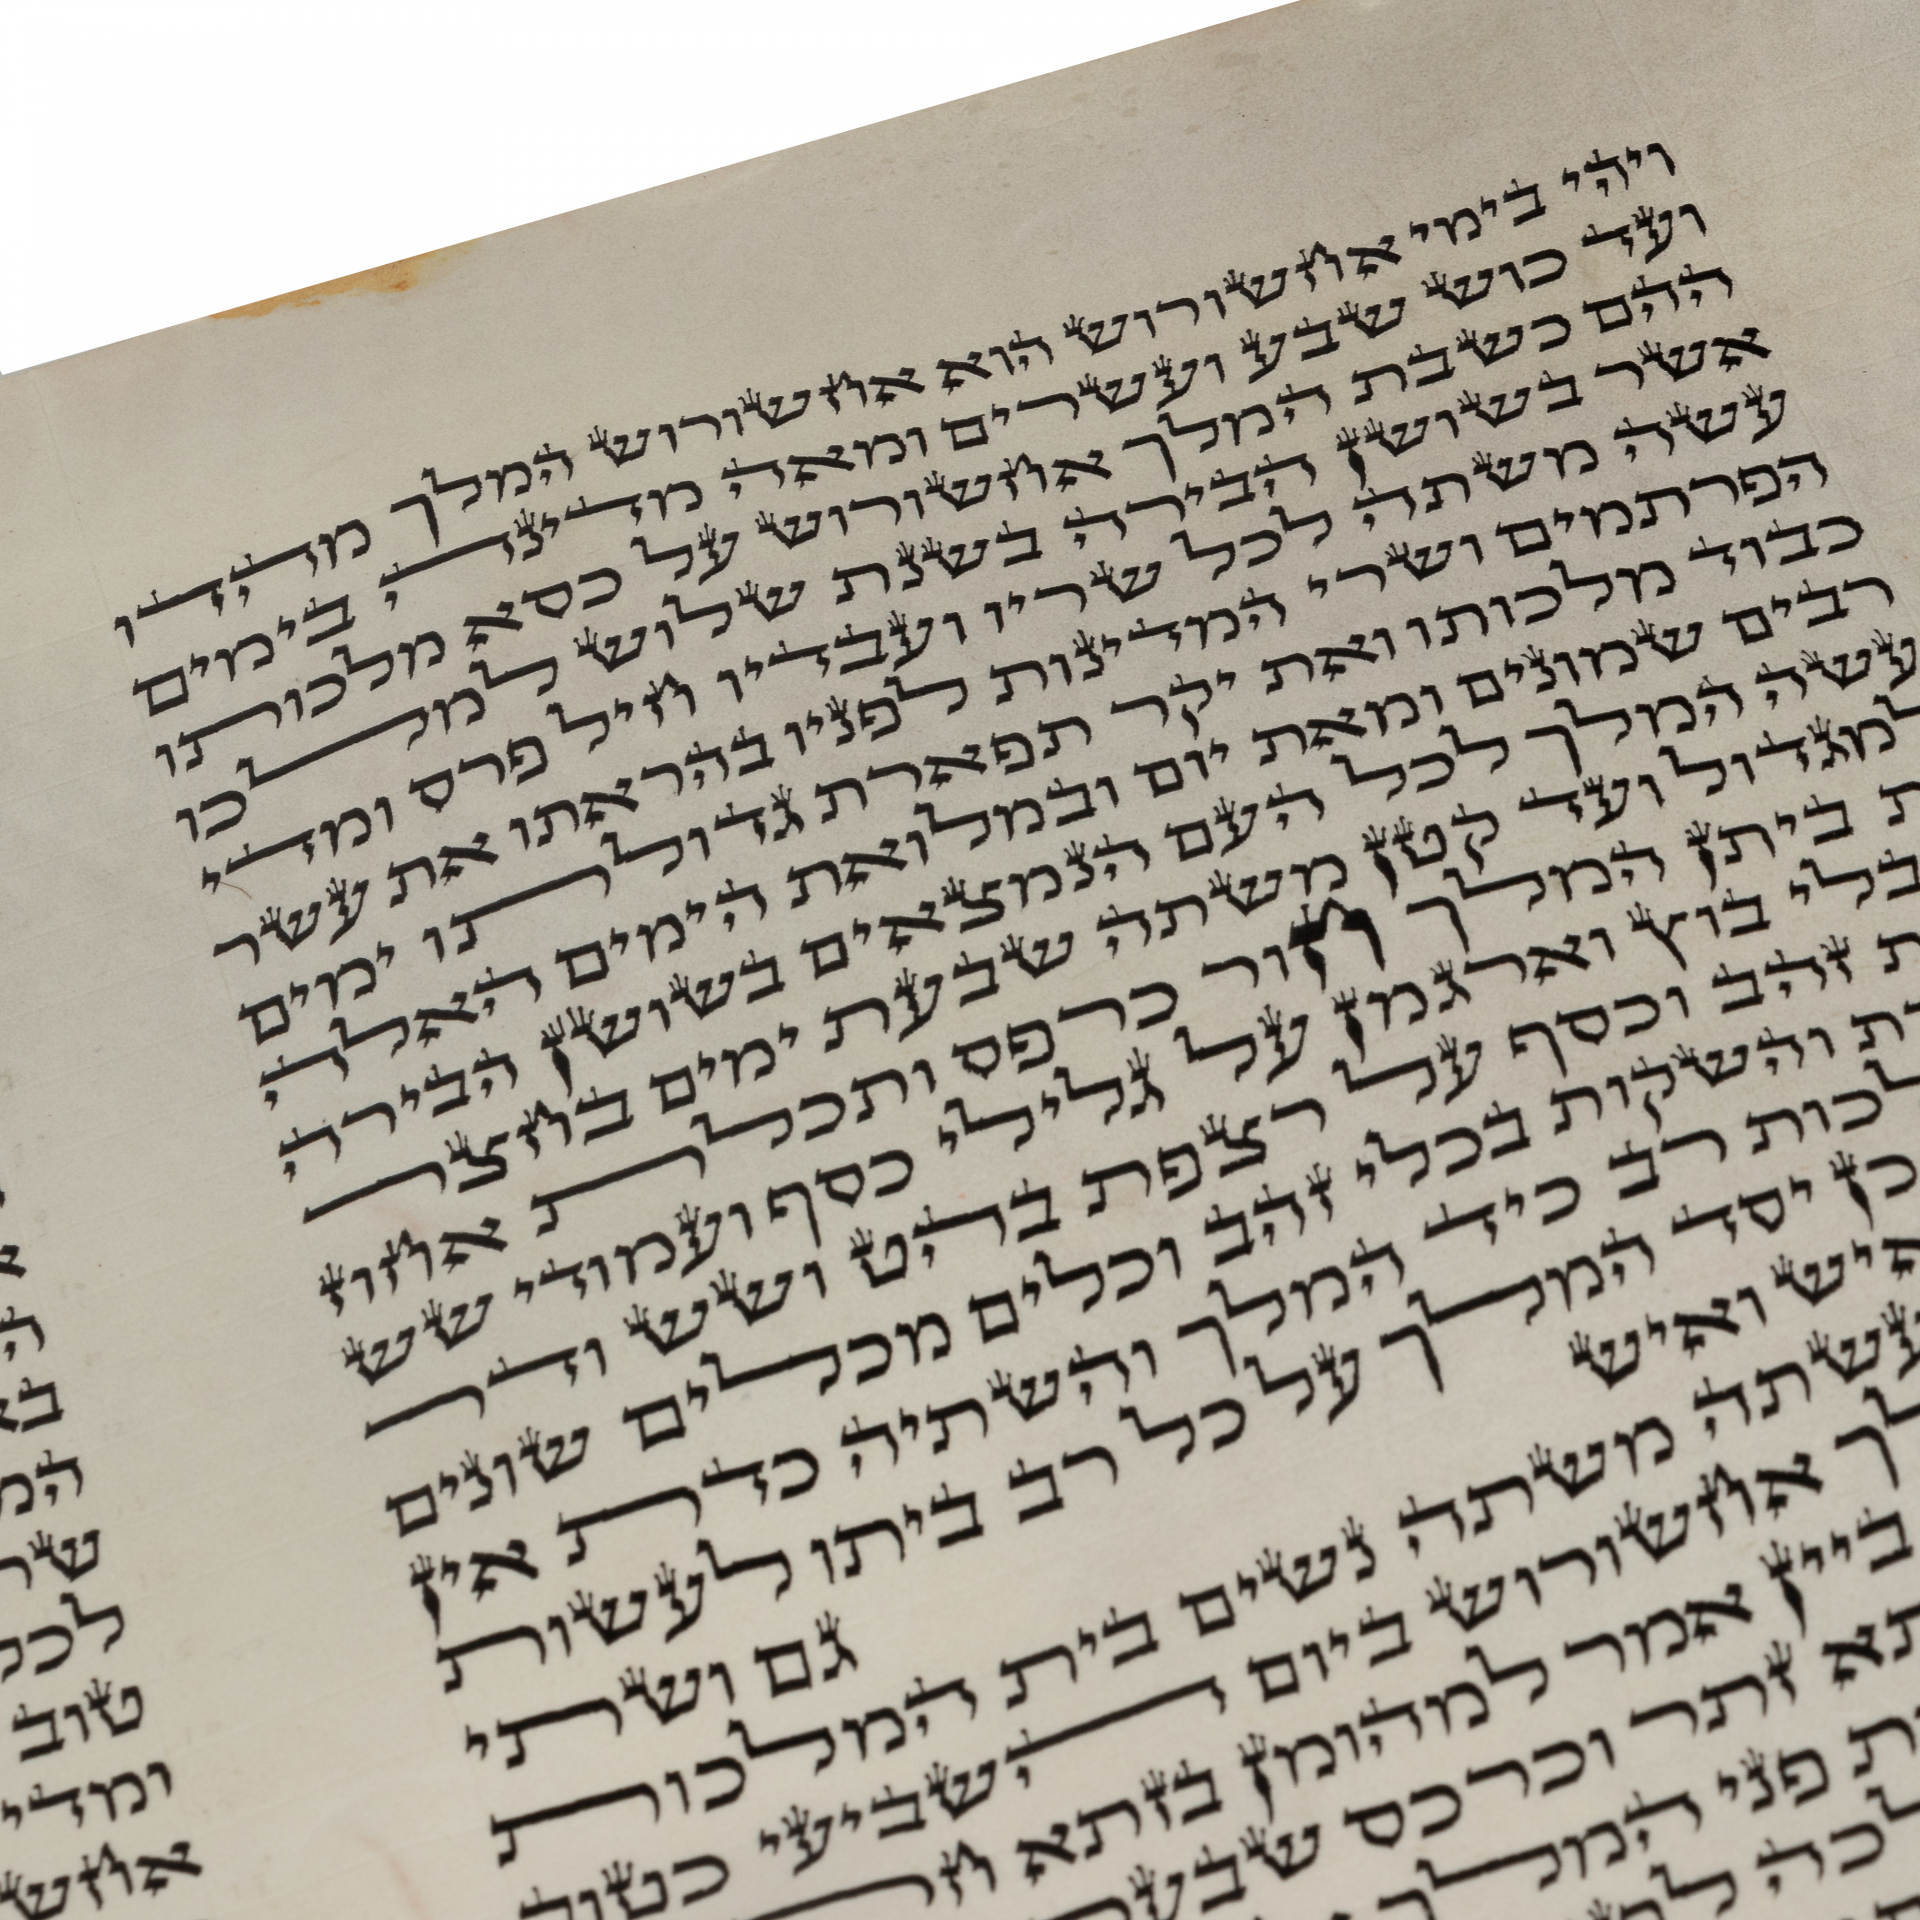 ויהי בימי אחשורוש הוא אחשורוש המלך מהדו
ועד כוש שבע ועשרים ומאה מדינה בימים
ההם כשבת המלך אחשורוש על כסא מלכותו
אשר בשושן הבירה בשנת שלוש למלכו
עשה משתה לכל שריו ועבדיו חיל פרס ומדי
הפרתמים ושרי המדינות לפניו בהראתו את עשר
כבוד מלכותו ואת יקר תפארת גדולתו ימים
רבים שמונים ומאת יום ובמלואת הימים האלה
עשה המלך לכל העם הנמצאים בשושן הבירה
למגדול ועד קטן משתה שבעת ימים בחצר
ת ביתן המלך חור כרפס ותכלת אחוז
בלי בוץ וארגמן על גלילי כסף ועמודי שש
ת זהב וכסף על רצפת בהט ושש ודר
ת והשקות בכלי זהב וכלים מכלים שונים
לכות רב כיד המלך והשתיה כדת אין
כן יסד המלך על כל רב ביתו לעשות
איש ואיש גם ושתי
עשתה משתה נשים בית המלכות
לך אחשורוש ביום השביעי כטוב
ביין אמר למהומן בזתא
תא זתר וכרכס
ת פני המלך
המ
שר
לכל
טוב
ומדי
אחש